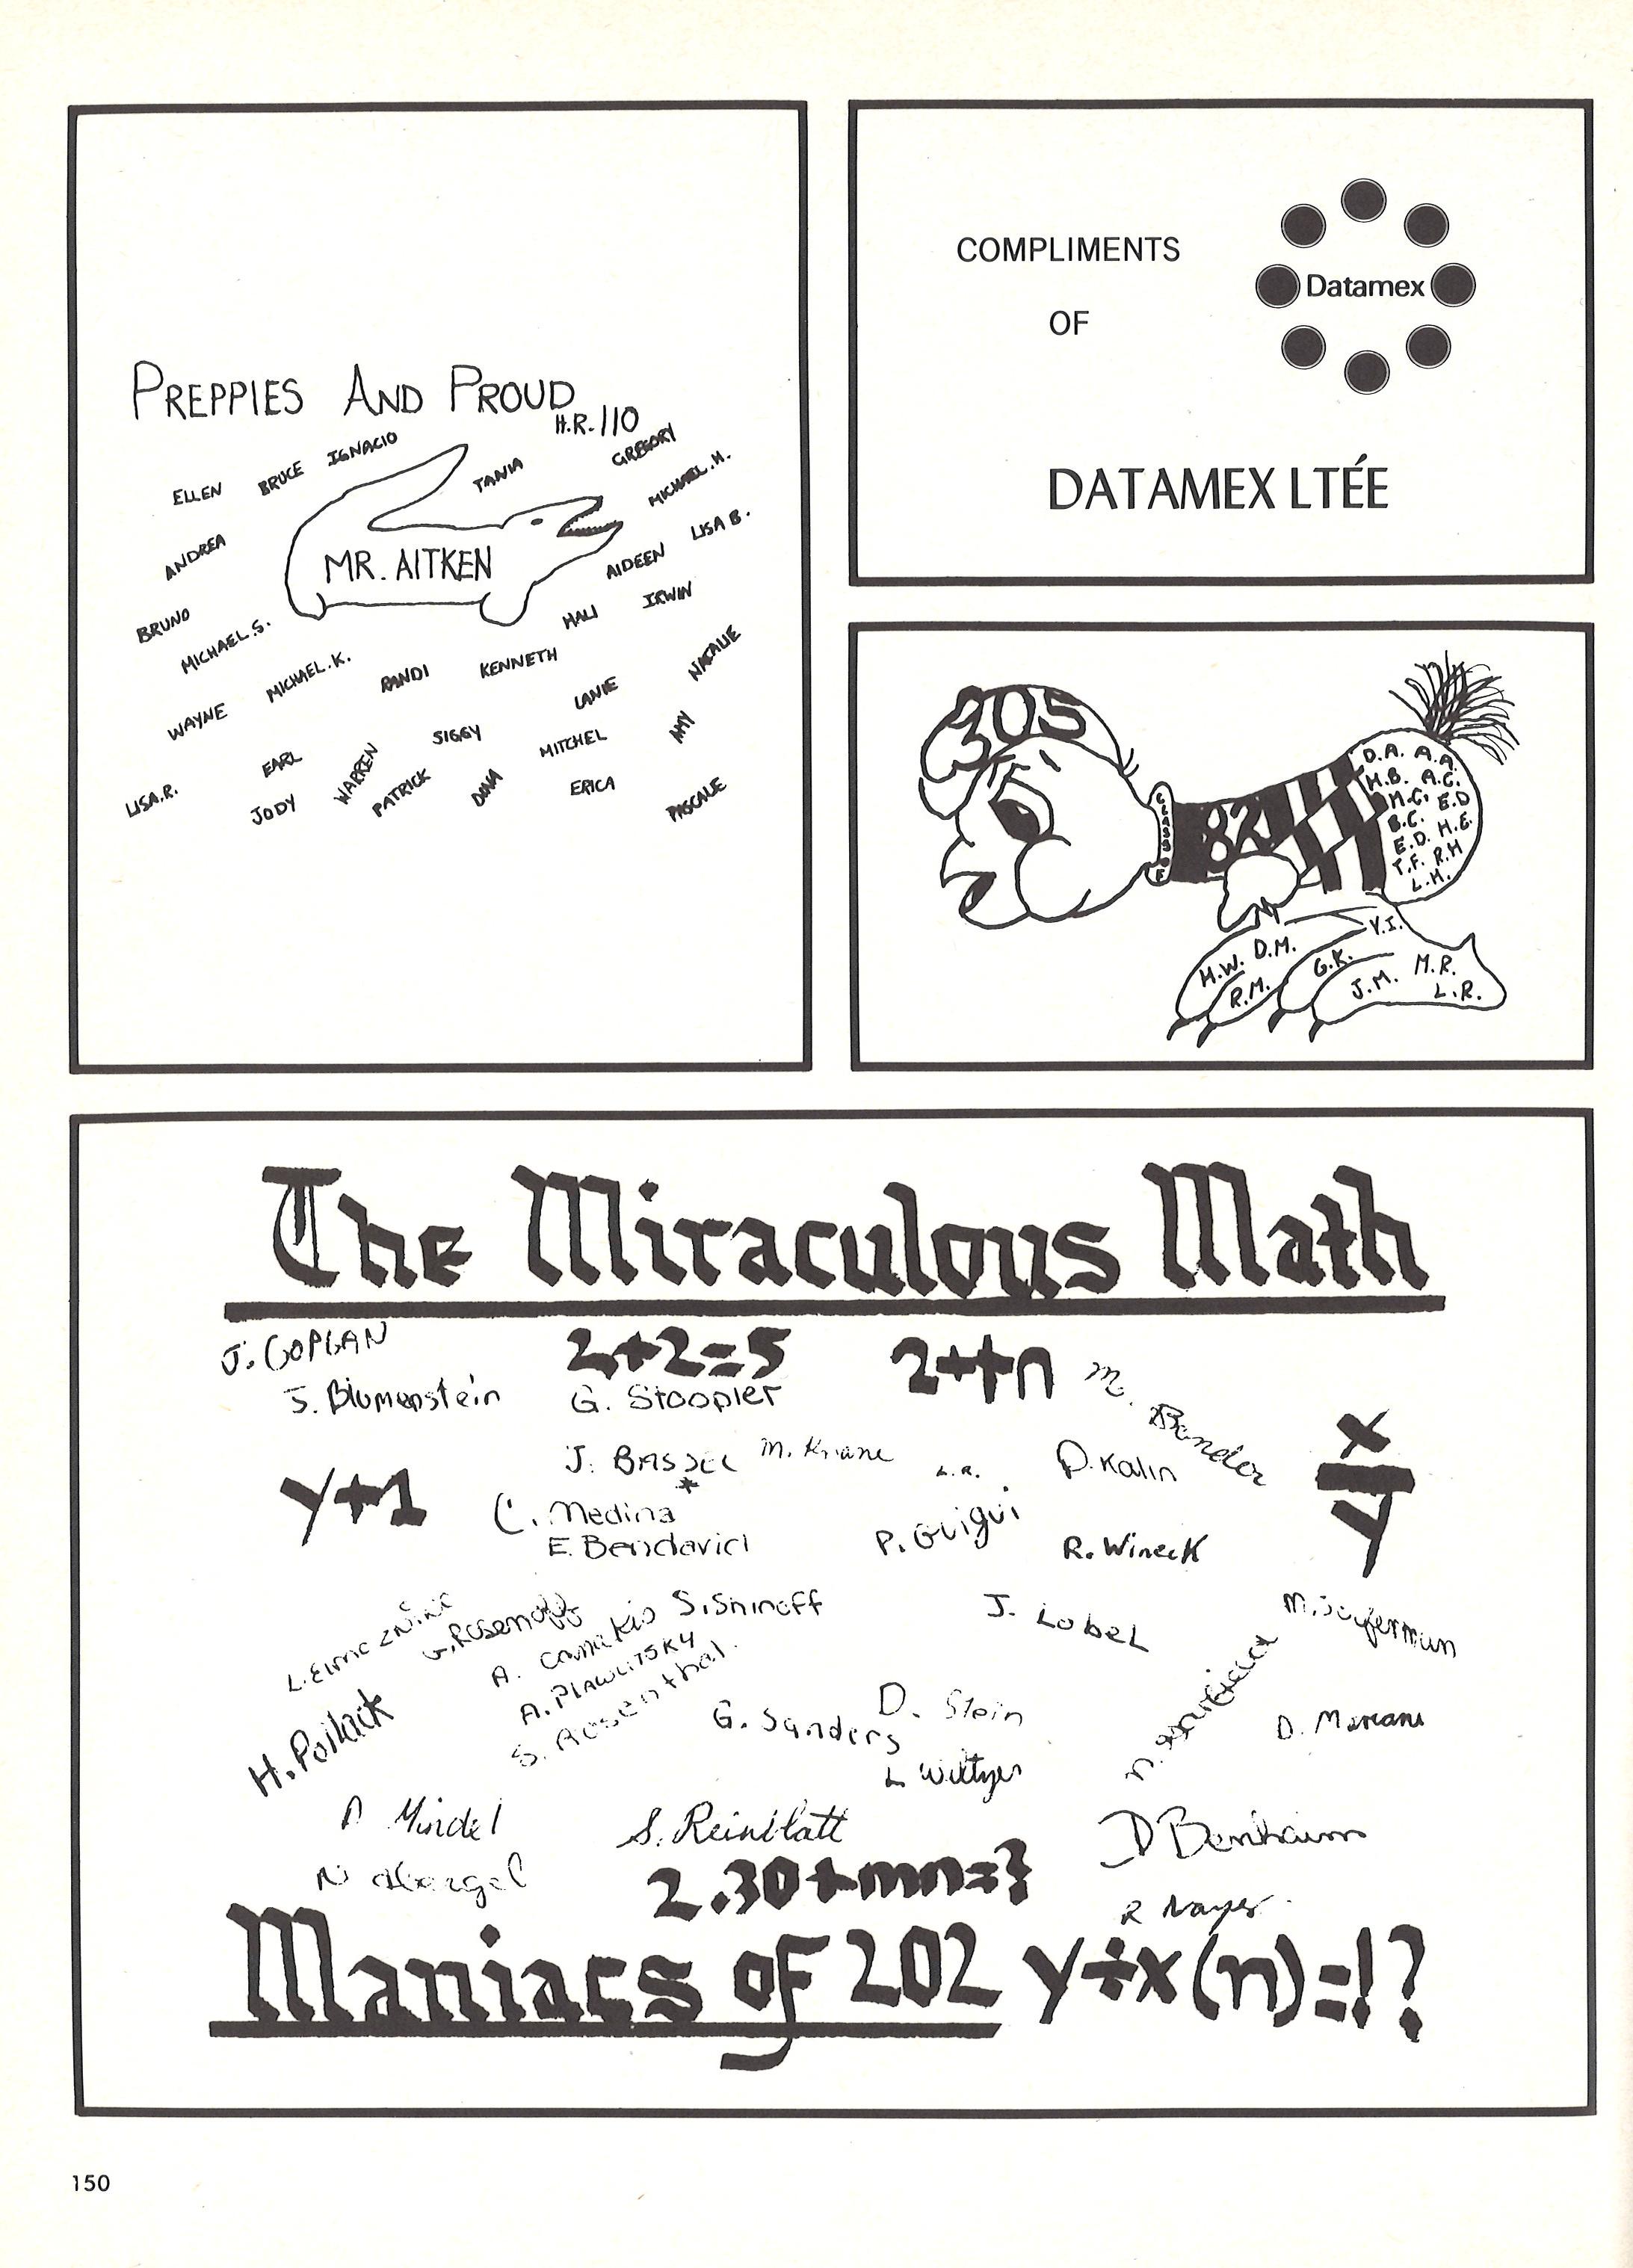 PREPPIES AND PROUD
H.R. 110
ELLEN
BRUCE
IGNACIO
TANIA
GREGORY
MICHAEL.H.
ANDREA
MR. AITKEN
AIDEEN
LISA B.
BRUNO
MICHAEL.S.
HALI
IRWIN
WAYNE
MICHAEL.K.
RANDI
KENNETH
LANIE
NATALIE
LISA.R.
EARL
JODY
WARREN
PATRICK
SIGGY
DINA
MITCHEL
ERICA
AMY
PASCALE
COMPLIMENTS
OF
Datamex
DATAMEX LTÉE
305
CLASS OF
82
D.A. A.A.
H.B. A.C.
M.C. E.D
B.C.
E.D. H.E.
T.F. R.H
L.H.
H.W. D.M.
R.M.
G.K.
Y.I.
J.M.
M.R.
L.R.
The Miraculous Math
J. COPLAN
2+2=5
2++n
S. Blumenstein
G. Stoopler
M. Bender
J. BASSEL
M.
L.R.
D. Kalin
x
y
y+1
C. Medina *
E. Bendavid
P. Guigui
R. Wineck
L.
G. Rosenoff
A.
S. Shinoff
J. Lobel
M. Soiferman
A. PLAWUTSKY
S. Rosenthal.
H. Pollack
G. Sanders
D. Stein
L Wiltzer
D.
Mindel
S. Reinblatt
D Benhaim
N Abergel
2.30+mn=?
R
Maniacs of 202 y÷x(n)=!?
150